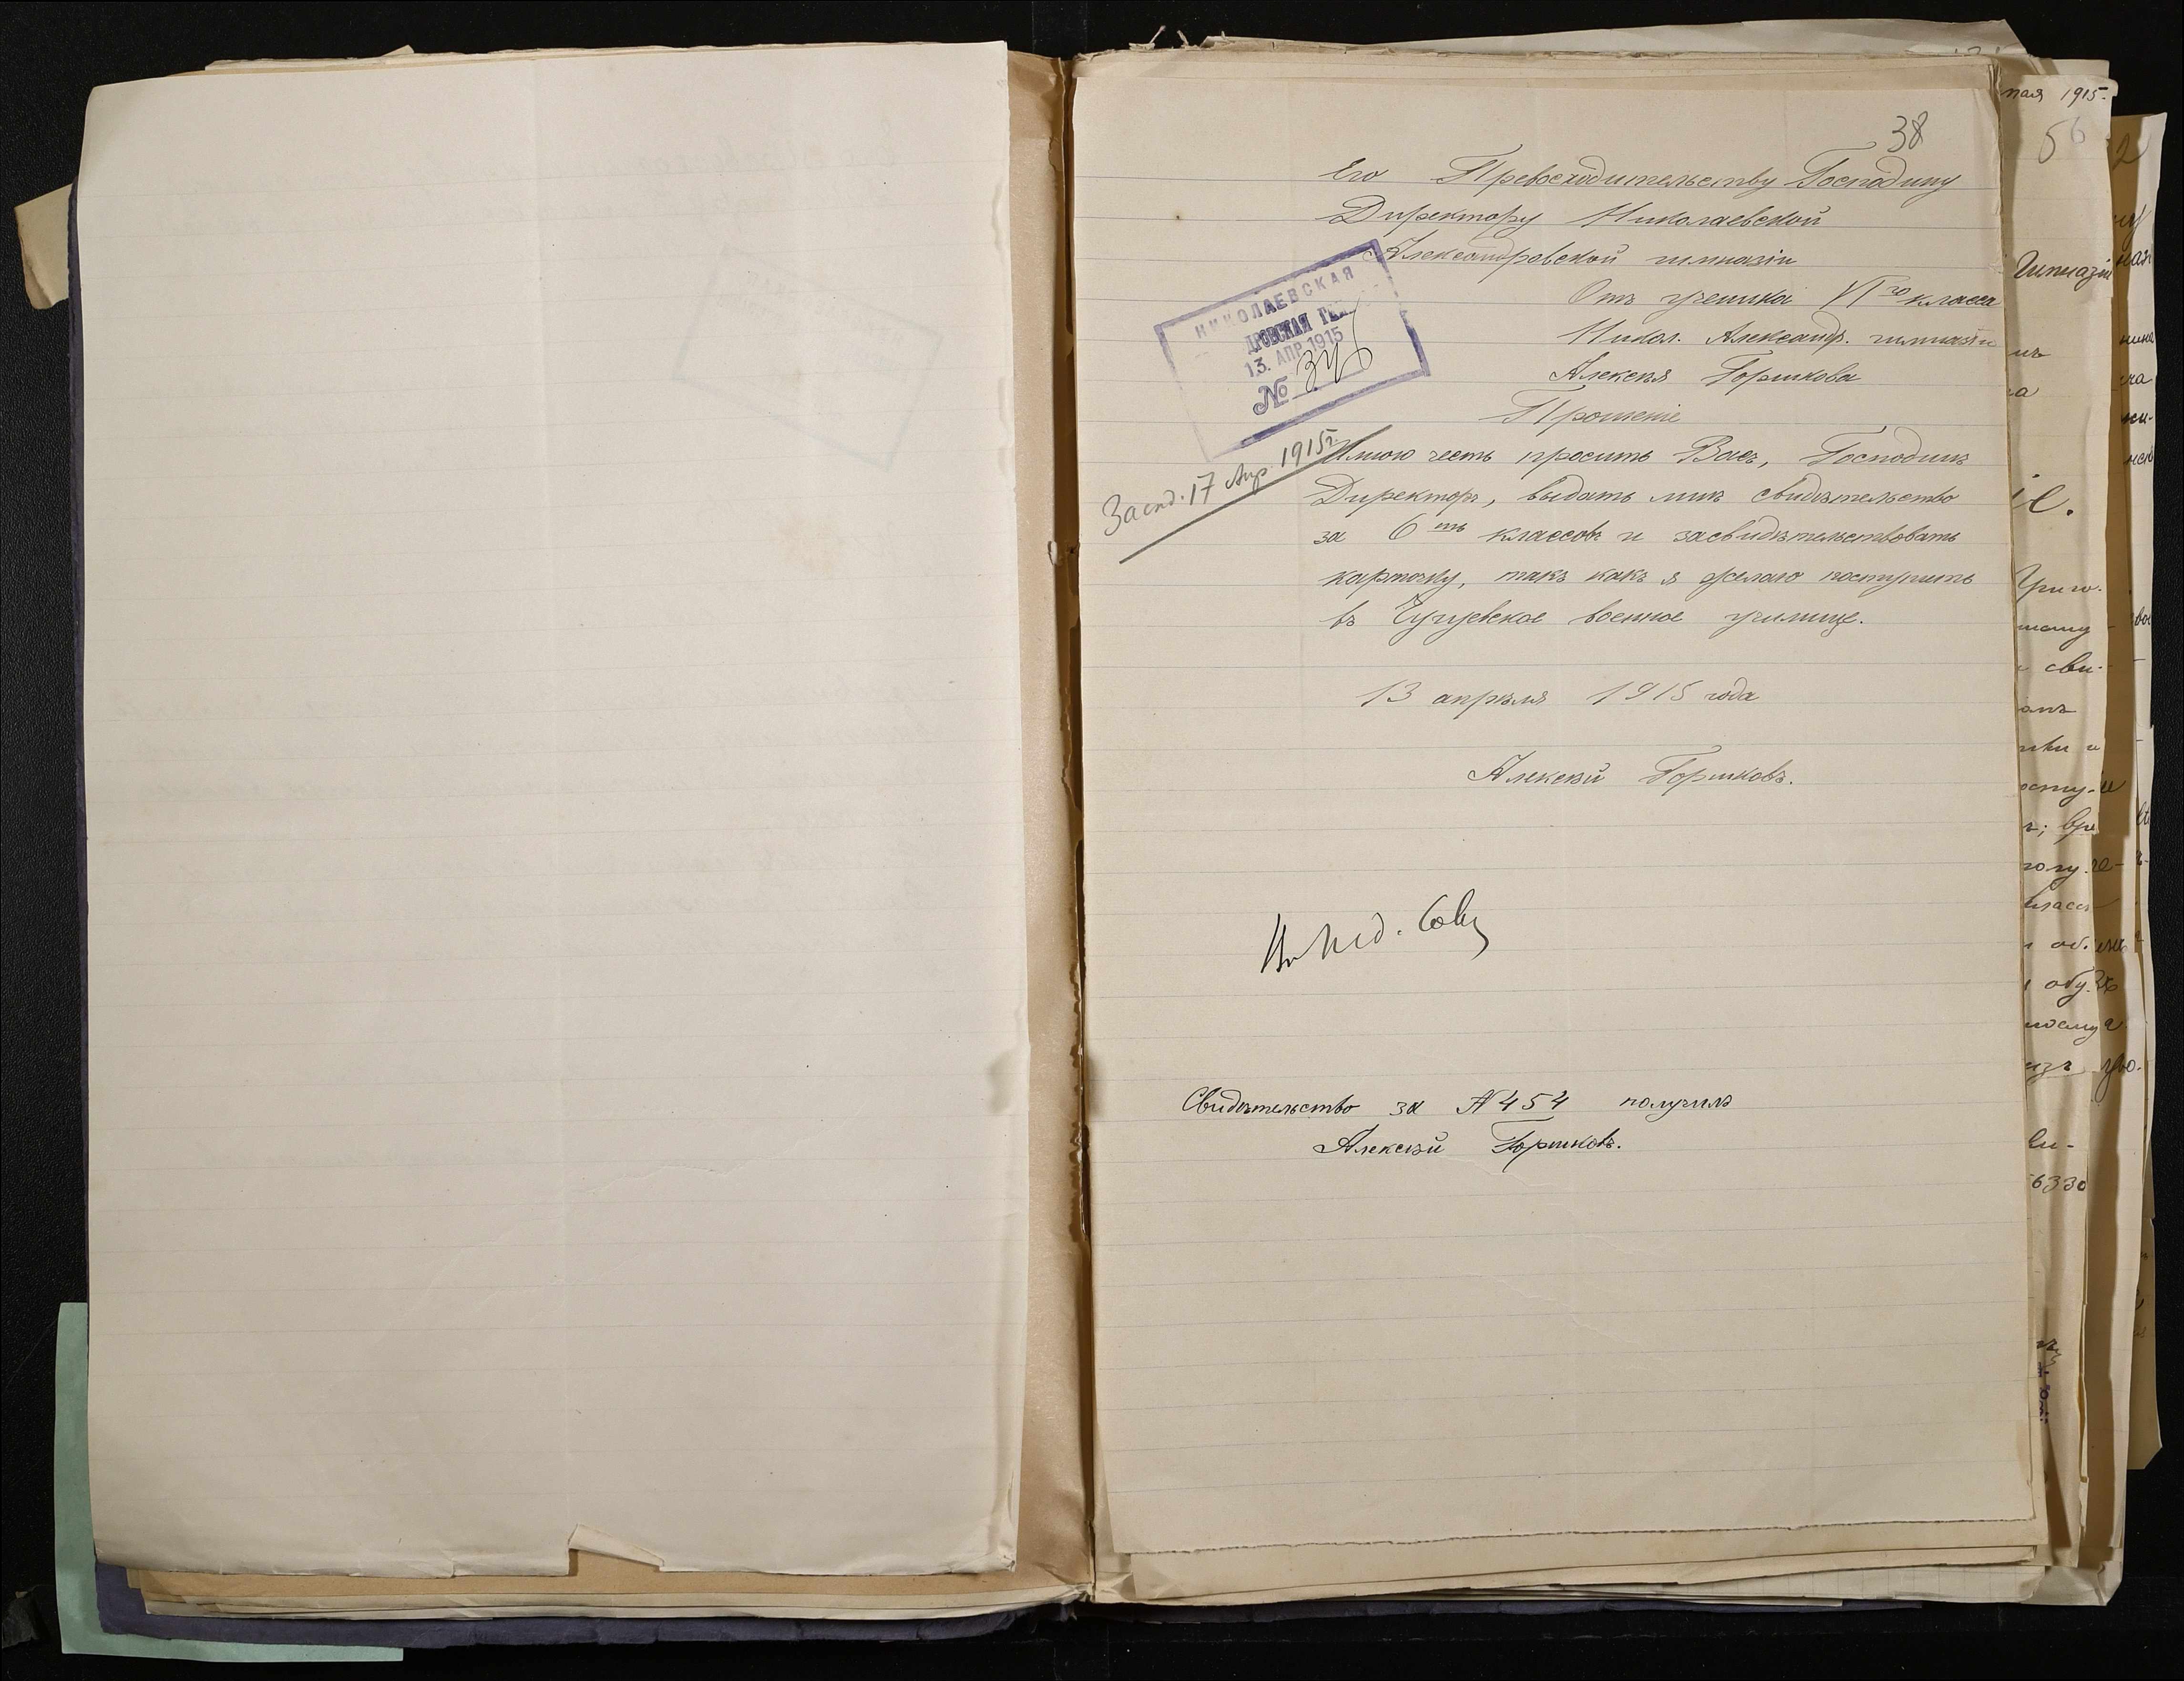 38
Его Превосходительству Господину
Директору Николаевской
Александровской гимназіи
Отъ ученика VI го класса
Никол. Александр. гимназіи
Алексѣя Горшкова
Прошеніе
НИКОЛАЕВСКАЯ
ДРОВСКАЯ ГИМ
13. АПР 1915
№
17 Апр. 1915 г.
Имѣю честь просить Васъ, Господинъ
Директоръ, выдать мнѣ свидѣтельство
за 6 ть классовъ и засвидѣтельствовать
карточку, такъ какъ я желаю поступить
въ Чугуевское военное училище.
13 апрѣля 1915 года
Алексѣй Горшковъ.
Свидѣтельство за № 454 получилъ
Алексѣй Горшковъ.
мая 1915.
56
Гимназіи